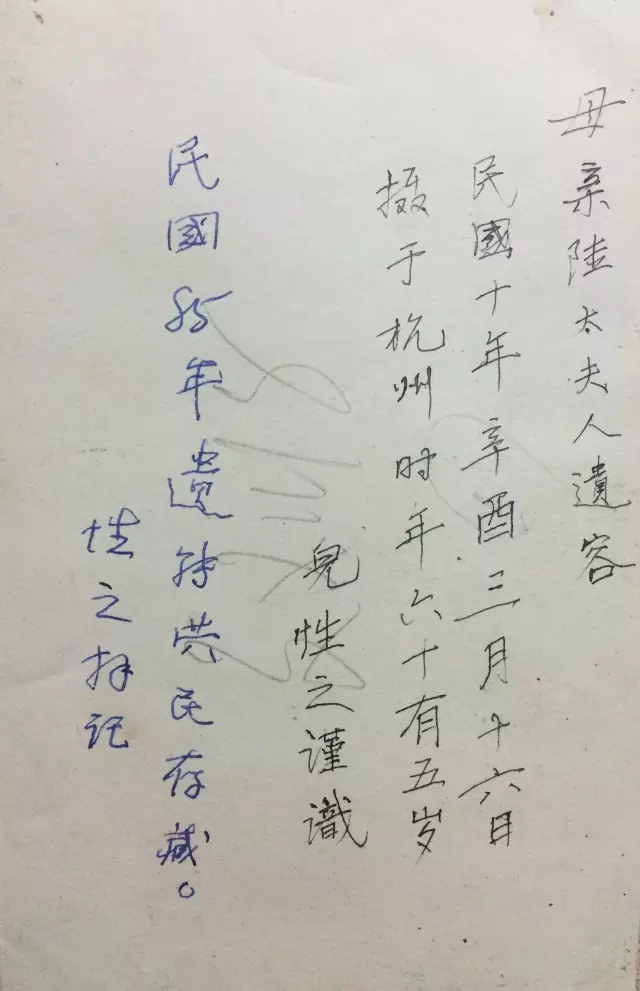 母亲陸太夫人遺容
民國十年辛酉三月十六日
摄于杭州时年六十有五岁
兒性之谨識
民國85年遗孙崇民存藏。
性之拜记